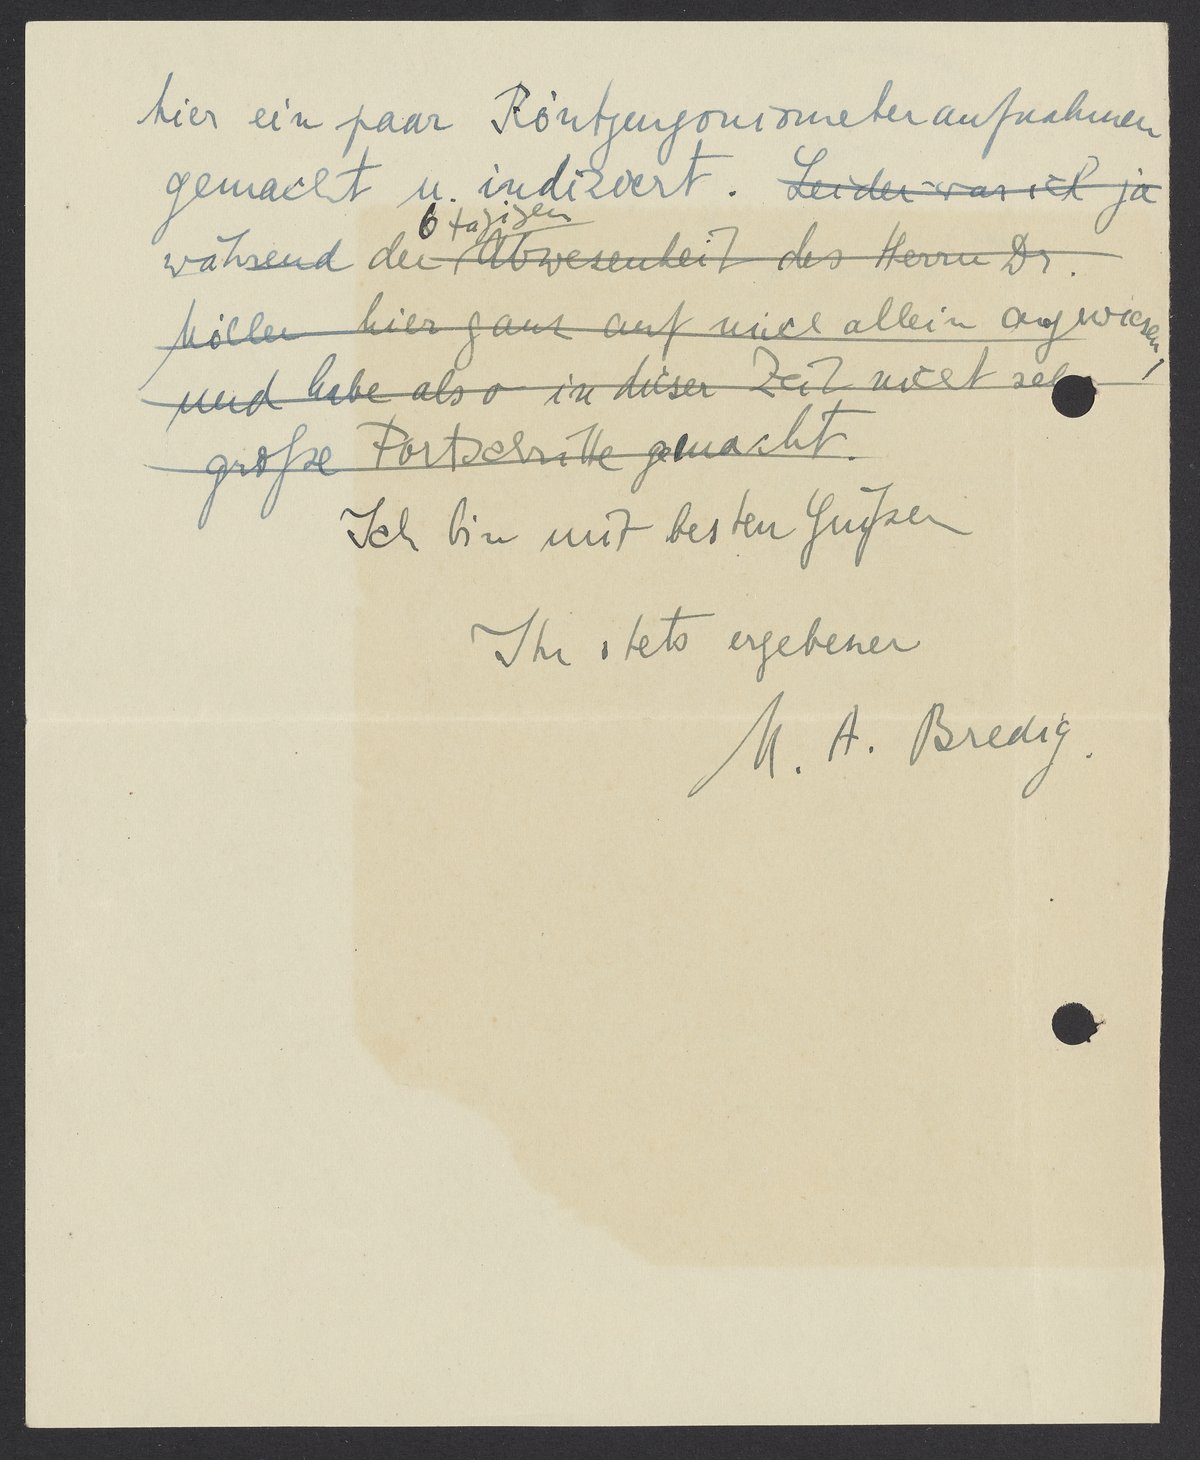 hier ein paar Röntgengoniometeraufnahmen
gemacht u. indiziert. Leider war ich ja
6 tägigen
während der Abwesenheit des Herrn Dr.
Möller hier ganz auf mich allein angewiesen,
und habe also in dieser Zeit nicht sehr
große Fortschritte gemacht.
Ich bin mit besten Grüßen
Ihr stets ergebener
M. A. Bredig.